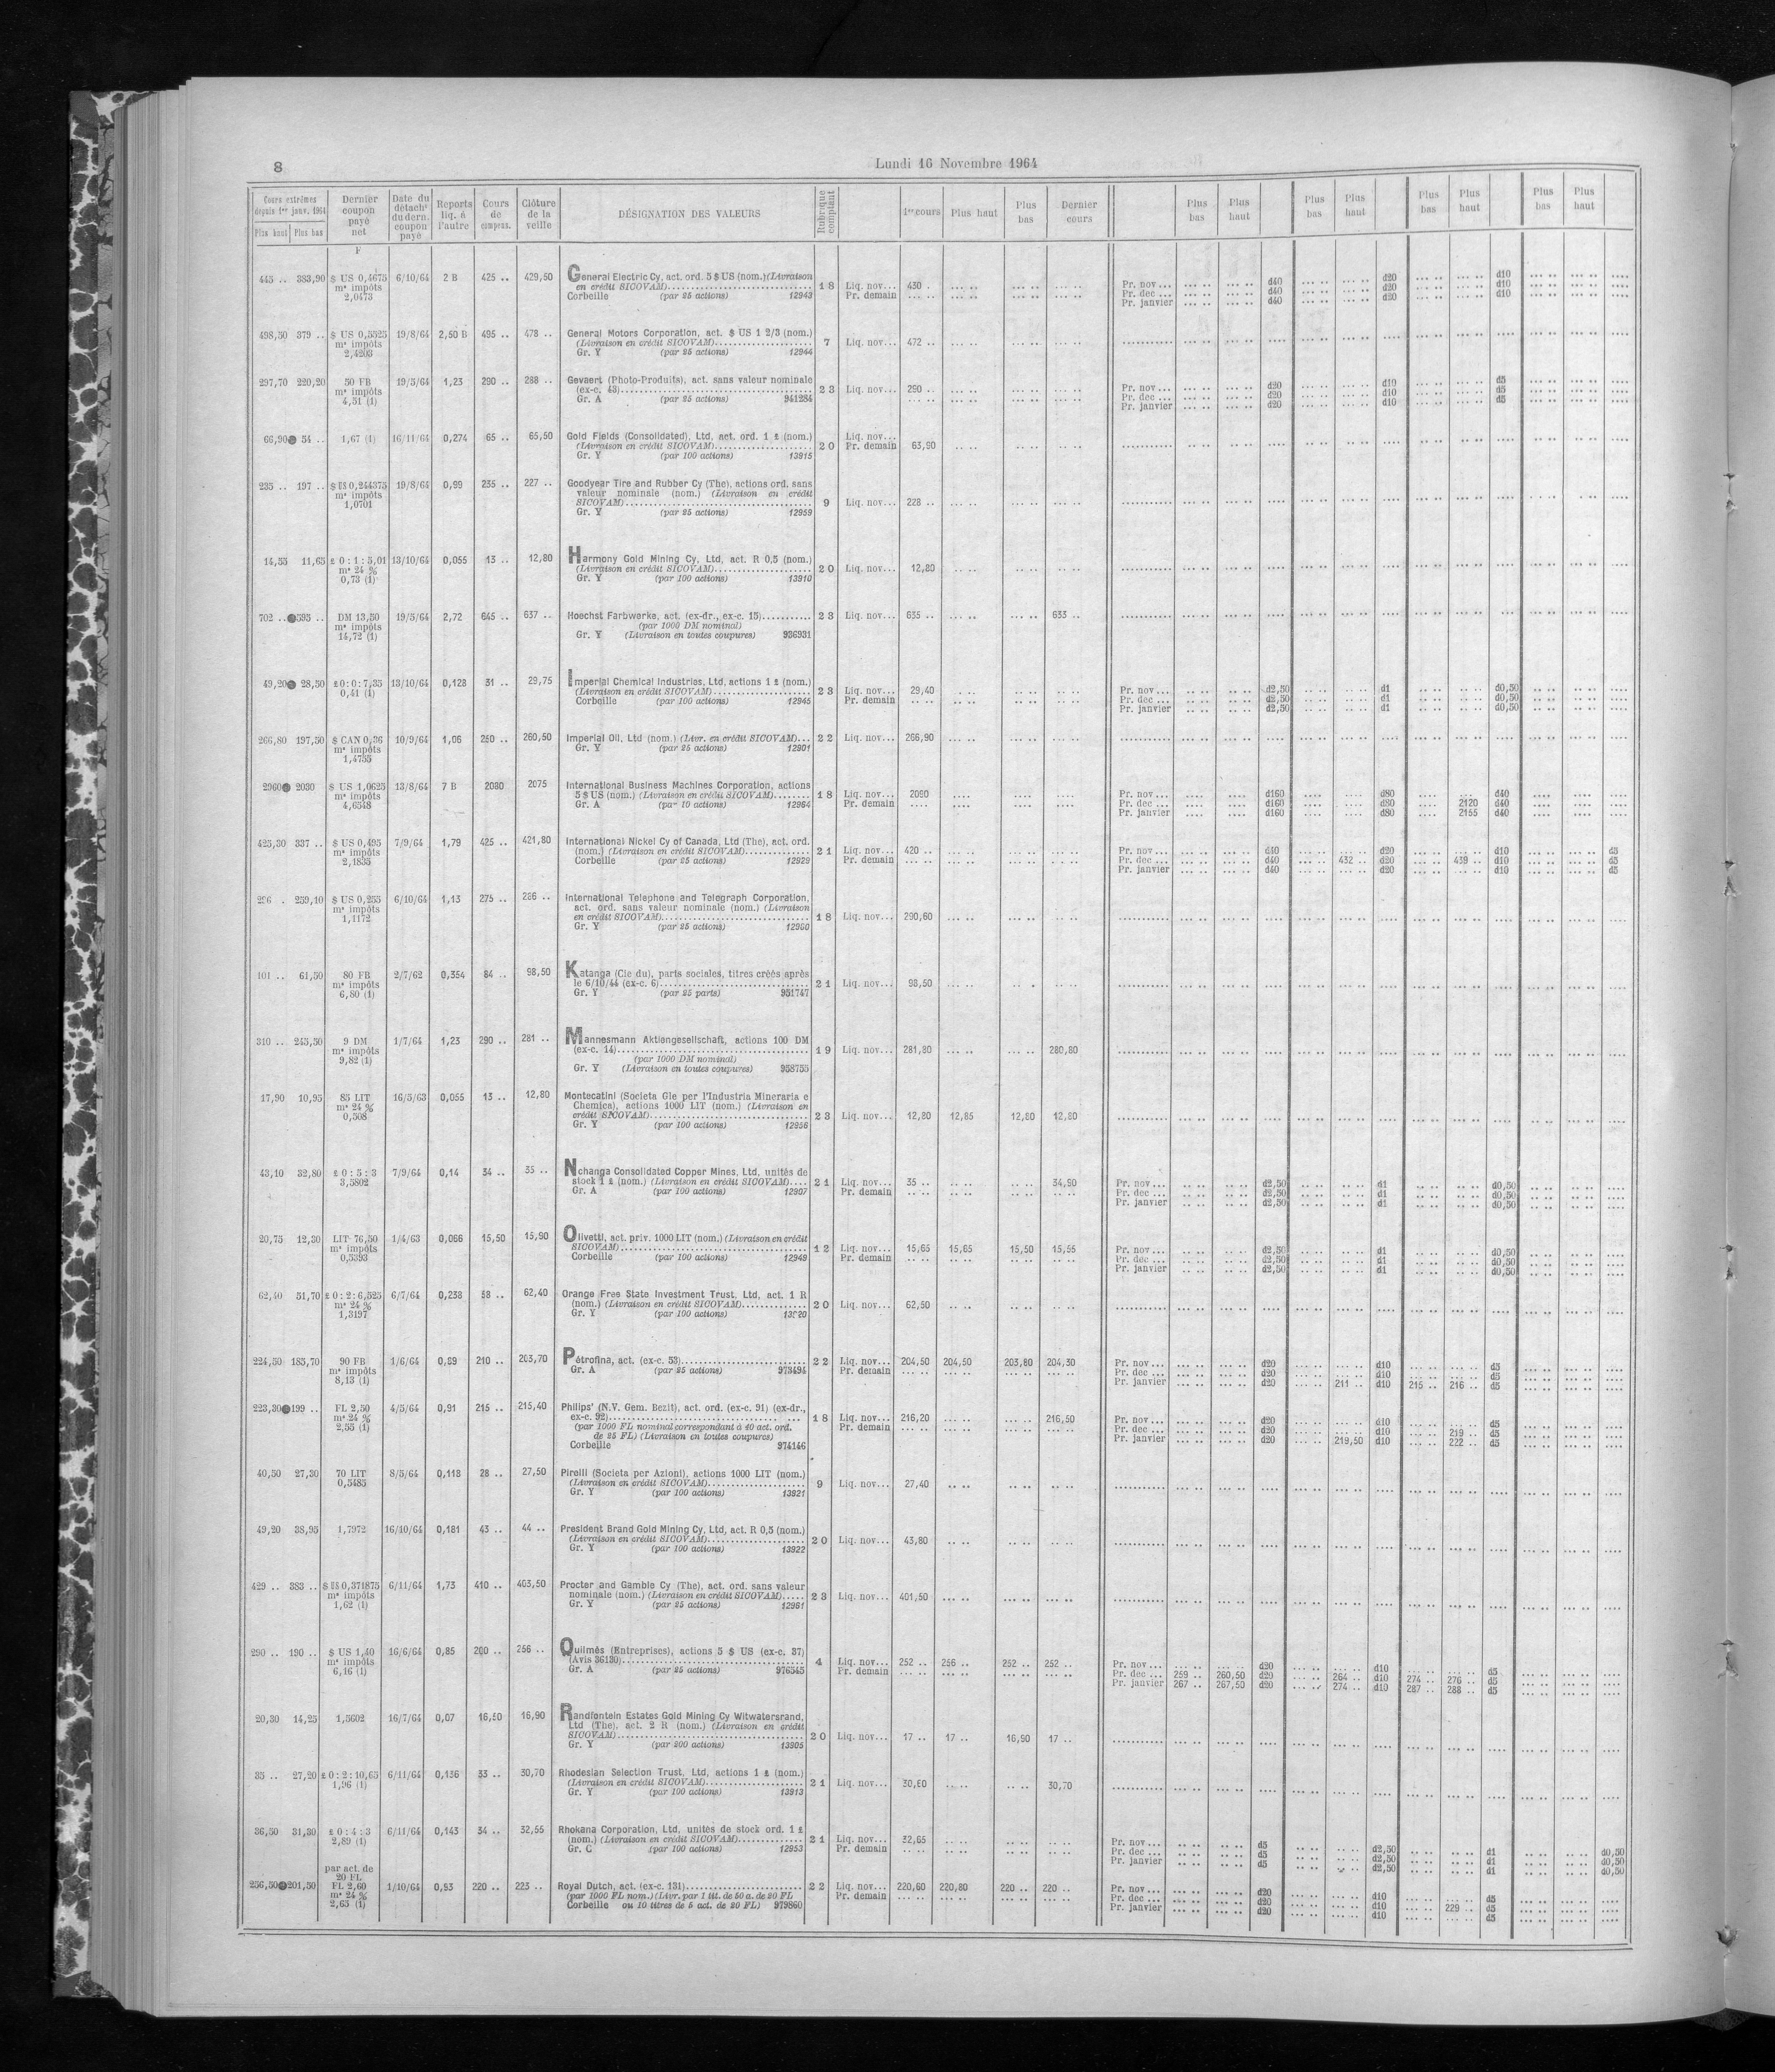 8
Lundi 16 Novembre 1964
Cours extrêmes depuis 1er janv. 1964 Plus haut Plus bas | Dernier coupon payé net | Date du détacht du dern. coupon payé | Reports liq. à l'autre | Cours de compens. | Clôture de la veille | DÉSIGNATION DES VALEURS | Rubrique comptant | 1er cours | Plus haut | Plus bas | Dernier cours | Plus bas | Plus haut | Plus bas | Plus haut | Plus bas | Plus haut | Plus bas | Plus haut
F
445 .. 383,90 $ US 0,4675 6/10/64 2 B 425 .. 429,50 General Electric Cy, act. ord. 5 $ US (nom.) (Livraison
ms impôts en crédit SICOVAM) 18 Liq. nov... 430 . Pr. nov ... d40 d20 d10
2,0473 Corbeille (par 25 actions) 12943 Pr. demain Pr. dec ... d40 d20 d10
Pr. janvier d40 d20 d10
498,50 379 .. $ US 0,5525 19/8/64 2,50 B 495 .. 478 .. General Motors Corporation, act. $ US 1 2/3 (nom.)
ms impôts (Livraison en crédit SICOVAM) 7 Liq. nov... 472 ..
2,4203 Gr. Y (par 25 actions) 12944
297,70 220,20 50 FB 19/5/64 1,23 290 .. 288 .. Gevaert (Photo-Produits), act. sans valeur nominale
ms impôts (ex-c. 43) 23 Liq. nov... 290 .. Pr. nov ... d20 d10 d5
4,51 (1) Gr. A (par 25 actions) 941284 Pr. dec ... d20 d10 d5
Pr. janvier d20 d10 d5
66,90 54 .. 1,67 (1) 16/11/64 0,274 65 .. 65,50 Gold Fields (Consolidated), Ltd, act. ord. 1 £ (nom.) Liq. nov...
(Livraison en crédit SICOVAM) 20 Pr. demain 63,90
Gr. Y (par 100 actions) 13915
235 .. 197 .. $ US 0,244375 19/8/64 0,99 235 .. 227 .. Goodyear Tire and Rubber Cy (The), actions ord. sans
ms impôts valeur nominale (nom.) (Livraison en crédit
1,0701 SICOVAM) 9 Liq. nov... 228 ..
Gr. Y (par 25 actions) 12959
14,55 11,65 £ 0 : 1 : 5,01 13/10/64 0,055 13 .. 12,80 Harmony Gold Mining Cy, Ltd, act. R 0,5 (nom.)
ms 24 % (Livraison en crédit SICOVAM) 20 Liq. nov... 12,80
0,73 (1) Gr. Y (par 100 actions) 13910
702 .. 595 .. DM 13,50 19/5/64 2,72 645 .. 637 .. Hoechst Farbwerke, act. (ex-dr., ex-c. 15) 23 Liq. nov... 635 .. 633 ..
ms impôts (par 1000 DM nominal)
14,72 (1) Gr. Y (Livraison en toutes coupures) 936931
49,20 28,50 £ 0 : 0 : 7,35 13/10/64 0,128 31 .. 29,75 Imperial Chemical Industries, Ltd, actions 1 £ (nom.)
0,41 (1) (Livraison en crédit SICOVAM) 23 Liq. nov... 29,40 Pr. nov ... d2,50 d1 d0,50
Corbeille (par 100 actions) 12945 Pr. demain Pr. dec ... d2,50 d1 d0,50
Pr. janvier d2,50 d1 d0,50
266,80 197,50 $ CAN 0,36 10/9/64 1,06 250 .. 260,50 Imperial Oil, Ltd (nom.) (Livr. en crédit SICOVAM) 22 Liq. nov... 266,90
ms impôts Gr. Y (par 25 actions) 12901
1,4755
2960 2030 $ US 1,0625 13/8/64 7 B 2080 2075 International Business Machines Corporation, actions
ms impôts 5 $ US (nom.) (Livraison en crédit SICOVAM) 18 Liq. nov... 2060 Pr. nov ... d160 d80 d40
4,6548 Gr. A (par 10 actions) 12964 Pr. demain Pr. dec ... d160 d80 2120 d40
Pr. janvier d160 d80 2155 d40
425,30 337 .. $ US 0,495 7/9/64 1,79 425 .. 421,80 International Nickel Cy of Canada, Ltd (The), act. ord.
ms impôts (nom.) (Livraison en crédit SICOVAM) 21 Liq. nov... 420 .. Pr. nov ... d40 d20 d10 d5
2,1835 Corbeille (par 25 actions) 12929 Pr. demain Pr. dec ... d40 432 .. d20 439 .. d10 d5
Pr. janvier d40 d20 d10 d5
296 . 259,10 $ US 0,255 6/10/64 1,13 275 .. 286 .. International Telephone and Telegraph Corporation,
ms impôts act. ord. sans valeur nominale (nom.) (Livraison
1,1172 en crédit SICOVAM) 18 Liq. nov... 290,60
Gr. Y (par 25 actions) 12960
101 .. 61,50 80 FB 2/7/62 0,354 84 .. 98,50 Katanga (Cie du), parts sociales, titres créés après
ms impôts le 6/10/44 (ex-c. 6) 21 Liq. nov... 98,50
6,80 (1) Gr. Y (par 25 parts) 951747
310 .. 245,50 9 DM 1/7/64 1,23 290 .. 281 .. Mannesmann Aktiengesellschaft, actions 100 DM
ms impôts (ex-c. 14) 19 Liq. nov... 281,80 280,80
9,82 (1) (par 1000 DM nominal)
Gr. Y (Livraison en toutes coupures) 958755
17,90 10,95 85 LIT 16/5/63 0,055 13 .. 12,80 Montecatini (Societa Gle per l'Industria Mineraria e
ms 24 % Chemica), actions 1000 LIT (nom.) (Livraison en
0,508 crédit SICOVAM) 23 Liq. nov... 12,80 12,85 12,80 12,80
Gr. Y (par 100 actions) 12956
43,10 32,80 £ 0 : 5 : 3 7/9/64 0,14 34 .. 35 .. Nchanga Consolidated Copper Mines, Ltd, unités de
3,5802 stock 1 £ (nom.) (Livraison en crédit SICOVAM) 21 Liq. nov... 35 .. 34,90 Pr. nov ... d2,50 d1 d0,50
Gr. A (par 100 actions) 12907 Pr. demain Pr. dec ... d2,50 d1 d0,50
Pr. janvier d2,50 d1 d0,50
20,75 12,30 LIT 76,50 1/4/63 0,066 15,50 15,90 Olivetti, act. priv. 1000 LIT (nom.) (Livraison en crédit
ms impôts SICOVAM) 12 Liq. nov... 15,65 15,65 15,50 15,55 Pr. nov ... d2,50 d1 d0,50
0,5393 Corbeille (par 100 actions) 12949 Pr. demain Pr. dec ... d2,50 d1 d0,50
Pr. janvier d2,50 d1 d0,50
62,40 51,70 £ 0 : 2 : 6,525 6/7/64 0,238 58 .. 62,40 Orange Free State Investment Trust, Ltd, act. 1 R
ms 24 % (nom.) (Livraison en crédit SICOVAM) 20 Liq. nov... 62,50
1,3197 Gr. Y (par 100 actions) 13920
224,50 185,70 90 FB 1/6/64 0,89 210 .. 203,70 Pétrofina, act. (ex-c. 53) 22 Liq. nov... 204,50 204,50 203,80 204,30 Pr. nov ... d20 d10 d5
ms impôts Gr. A (par 25 actions) 973494 Pr. demain Pr. dec ... d20 d10 d5
8,13 (1) Pr. janvier d20 211 .. d10 215 .. 216 .. d5
223,30 199 .. FL 2,50 4/5/64 0,91 215 .. 215,40 Philips' (N.V. Gem. Bezit), act. ord. (ex-c. 91) (ex-dr.,
ms 24 % ex-c. 92) 18 Liq. nov... 216,20 216,50 Pr. nov ... d20 d10 d5
2,55 (1) (par 1000 FL nominal correspondant à 40 act. ord. Pr. demain Pr. dec ... d20 d10 219 .. d5
de 25 FL) (Livraison en toutes coupures) Pr. janvier d20 219,50 d10 222 .. d5
Corbeille 974146
40,50 27,30 70 LIT 8/5/64 0,118 28 .. 27,50 Pirelli (Societa per Azioni), actions 1000 LIT (nom.)
0,5485 (Livraison en crédit SICOVAM) 9 Liq. nov... 27,40
Gr. Y (par 100 actions) 13921
49,20 38,95 1,7972 16/10/64 0,181 43 .. 44 .. President Brand Gold Mining Cy, Ltd, act. R 0,5 (nom.)
(Livraison en crédit SICOVAM) 20 Liq. nov... 43,80
Gr. Y (par 100 actions) 13922
429 .. 383 .. $ US 0,371875 6/11/64 1,73 410 .. 403,50 Procter and Gamble Cy (The), act. ord. sans valeur
ms impôts nominale (nom.) (Livraison en crédit SICOVAM) 23 Liq. nov... 401,50
1,62 (1) Gr. Y (par 25 actions) 12961
290 .. 190 .. $ US 1,40 16/6/64 0,85 200 .. 256 .. Quilmès (Entreprises), actions 5 $ US (ex-c. 37)
ms impôts (Avis 36130) 4 Liq. nov... 252 .. 256 .. 252 .. 252 .. Pr. nov ... d20 d10 d5
6,16 (1) Gr. A (par 25 actions) 976545 Pr. demain Pr. dec ... 259 .. 260,50 d20 264 .. d10 274 .. 276 .. d5
Pr. janvier 267 .. 267,50 d20 274 .. d10 287 .. 288 .. d5
20,30 14,25 1,5602 16/7/64 0,07 16,50 16,90 Randfontein Estates Gold Mining Cy Witwatersrand,
Ltd (The), act. 2 R (nom.) (Livraison en crédit
SICOVAM) 20 Liq. nov... 17 .. 17 .. 16,90 17 ..
Gr. Y (par 200 actions) 13905
35 .. 27,20 £ 0 : 2 : 10,65 6/11/64 0,136 33 .. 30,70 Rhodesian Selection Trust, Ltd, actions 1 £ (nom.)
1,96 (1) (Livraison en crédit SICOVAM) 21 Liq. nov... 30,60 30,70
Gr. Y (par 100 actions) 13913
36,50 31,30 £ 0 : 4 : 3 6/11/64 0,143 34 .. 32,55 Rhokana Corporation, Ltd, unités de stock ord. 1 £
2,89 (1) (nom.) (Livraison en crédit SICOVAM) 21 Liq. nov... 32,65 Pr. nov ... d5 d2,50 d1 d0,50
Gr. C (par 100 actions) 12953 Pr. demain Pr. dec ... d5 d2,50 d1 d0,50
Pr. janvier d5 d2,50 d1 d0,50
par act. de
20 FL
256,50 201,50 FL 2,60 1/10/64 0,93 220 .. 223 .. Royal Dutch, act. (ex-c. 131) 22 Liq. nov... 220,60 220,80 220 .. 220 .. Pr. nov ... d20 d10 d5
ms 24 % (par 1000 FL nom.) (Livr. par 1 tit. de 50 a. de 20 FL Pr. demain Pr. dec ... d20 d10 229 .. d5
2,63 (1) Corbeille ou 10 titres de 5 act. de 20 FL) 979860 Pr. janvier d20 d10 d5